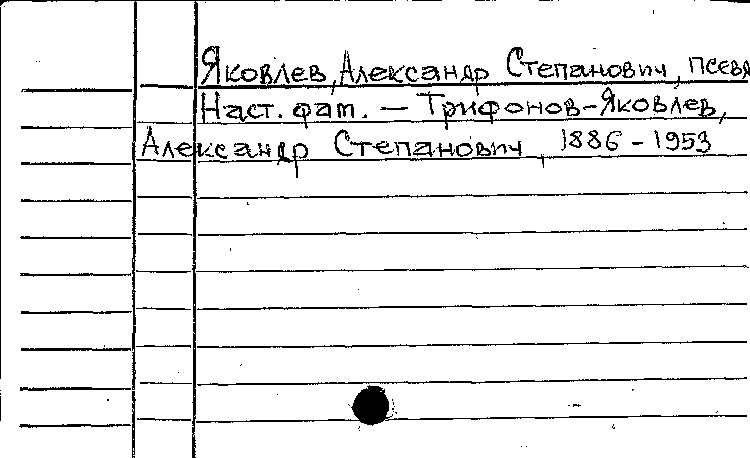 Яковлев, Александр Степанович, псевд
Наст. фам. — Трифонов-Яковлев,
Александр Степанович, 1886 - 1953